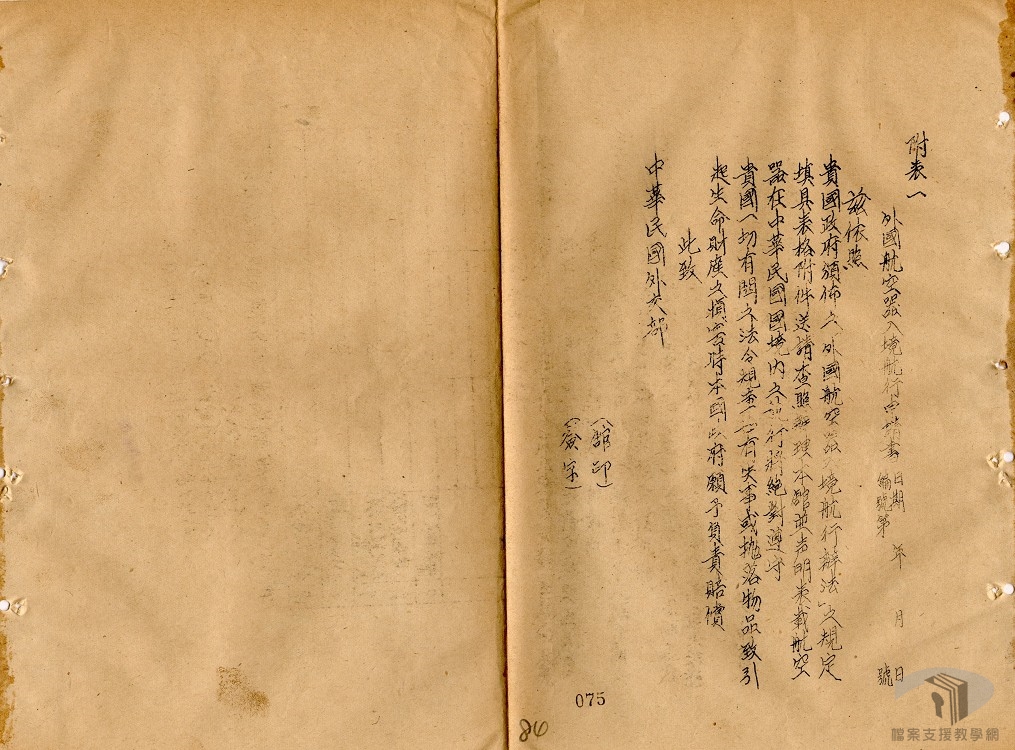 附表一
外國航空器入境航行申請書
日期 年 月 日
編號第 號
茲依照
貴國政府頒佈之「外國航空器入境航行辦法」之規定
填具表格附件送請查照辦理本館並声明表載航空
器在中華民國國境內之飛行將絕對遵守
貴國一切有関之法令規章 有失事或拋落物品致引
起生命財產之損害時本國政府願予負責賠償
此致
中華民國外交部
(館印)
(簽字)
075
84
檔案支援教學網